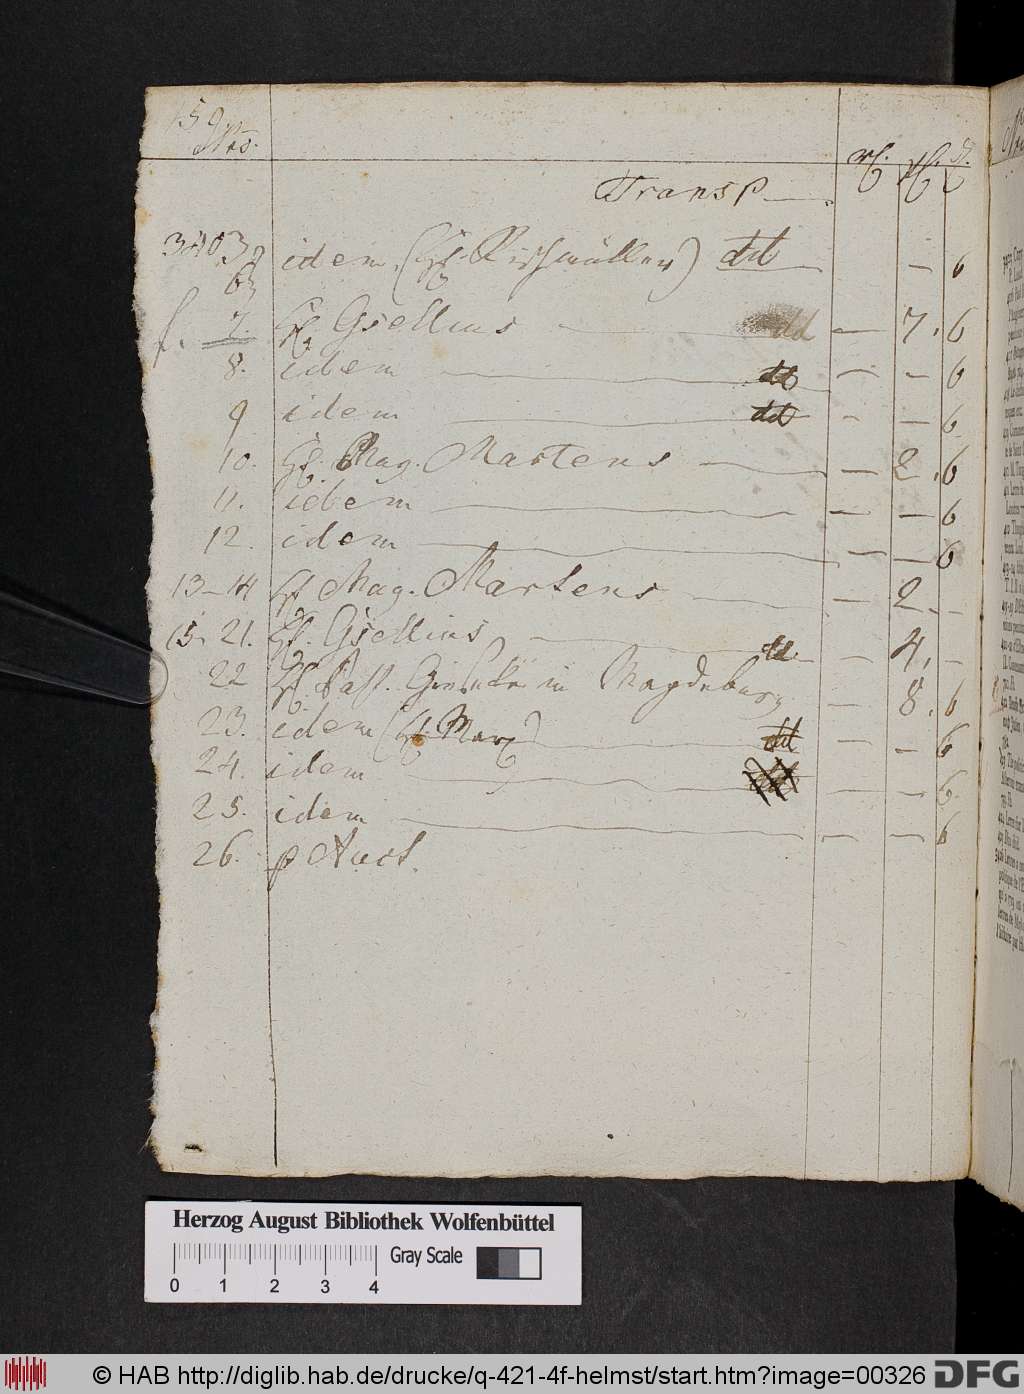 159.
Nro.
Transp
3403 idem (H. Rischmüller) dd — 6
6
f. 7. H. Gsellius dd — 7. 6
8. idem dd — — 6
9 idem dd — — 6
10. H. Mag. Martens — 2. 6
11. idem — — 6
12. idem — — 6
13-14 H. Mag. Martens — 2. —
15-21. H. Gsellius dd — 4. —
22 H. Past. in Magdeburg — 8. 6
23. idem (H. Marx) dd — — 6
24. idem — — 6.
25. idem — — 6
26. p Auct.
Herzog August Bibliothek Wolfenbüttel
Gray Scale
0 1 2 3 4
© HAB http://diglib.hab.de/drucke/q-421-4f-helmst/start.htm?image=00326 DFG